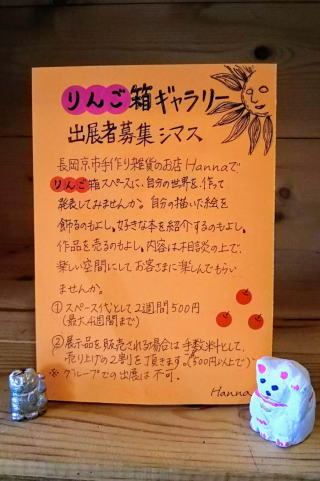 りんご箱ギャラリー
出展者募集シマス
長岡京市手作り雑貨のお店Hannaで
りんご箱スペースに、自分の世界を、作って
発表してみませんか。自分の描いた絵を
飾るのもよし。好きな本を紹介するのもよし。
作品を売るのもよし。内容は不相談の上で、
楽しい空間にしてお客さまに楽しんでもらい
ませんか。
①スペース代として2週間500円
(最大4週間まで)
②展示品を販売される場合は手数料として、
売り上げの2割を頂きます。(500円以上で)
※グループでの出展は不可。
Hanna